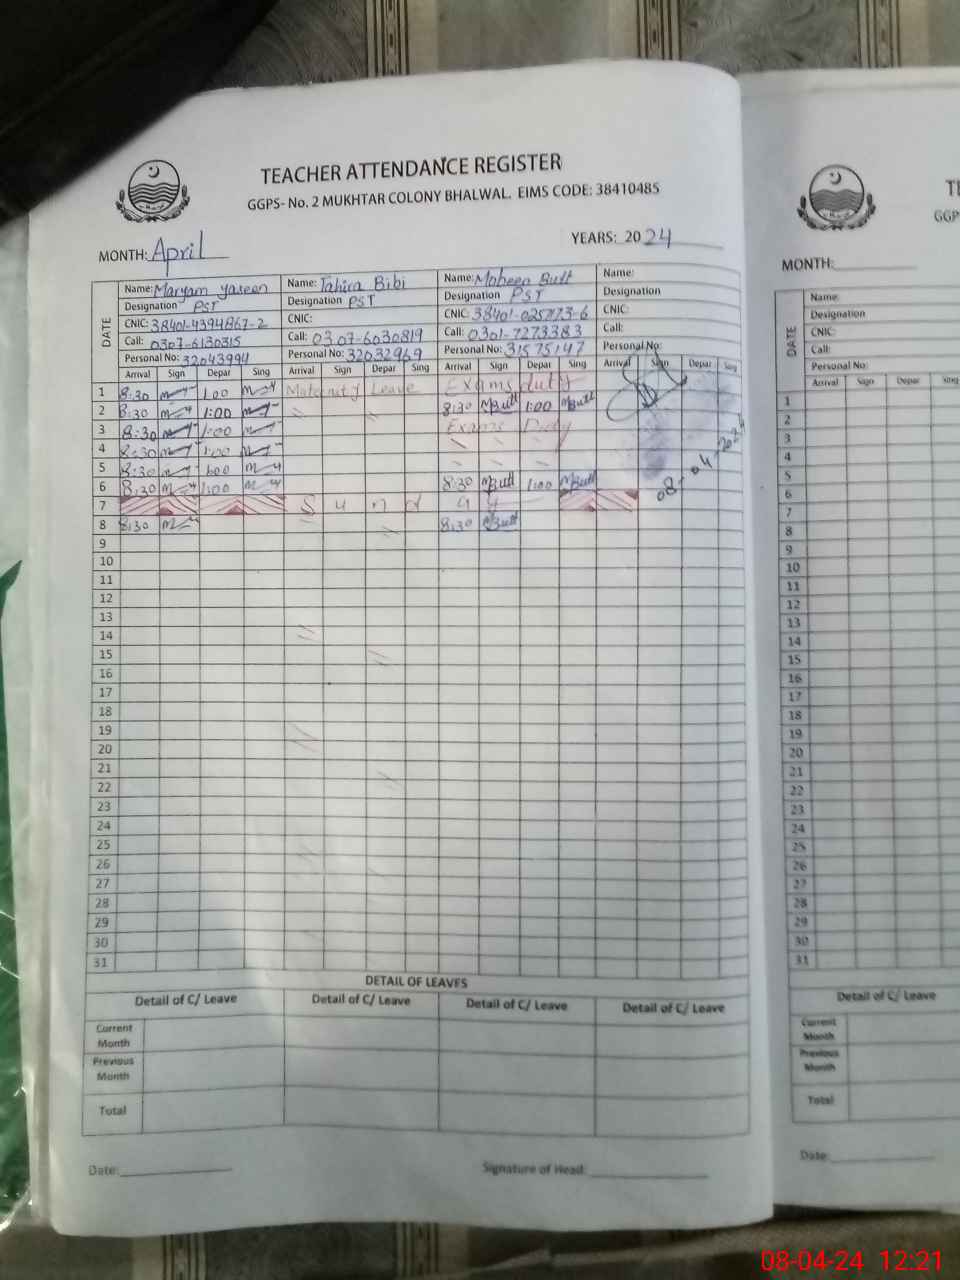 TEACHER ATTENDANCE REGISTER
GGPS- No. 2 MUKHTAR COLONY BHALWAL. EIMS CODE: 38410485
MONTH: April YEARS: 2024
DATE
Name: Maryam yaseen Name: Tahira Bibi Name: Moheen Butt Name:
Designation PST Designation PST Designation PST Designation
CNIC: 38401-4394867-2 CNIC: CNIC: 38401-0257173-6 CNIC:
Call: 0307-6130315 Call: 0307-6030819 Call: 0301-7273383 Call:
Personal No: 32043994 Personal No: 32032969 Personal No: 31575147 Personal No:
Arrival Sign Depar Sing Arrival Sign Depar Sing Arrival Sign Depar Sing Arrival Sign Depar Sing
1 8:30 1:00 Maternity Leave Exams duty
2 8:30 1:00 " " 8:30 MButt 1:00 MButt
3 8:30 1:00 Exams Duty
4 8:30 1:00
5 8:30 1:00
6 8:30 1:00 8:30 MButt 1:00 MButt
7 S u n d a y
8 8:30 8:30 MButt
08-04-2024
9
10
11
12
13
14
15
16
17
18
19
20
21
22
23
24
25
26
27
28
29
30
31
DETAIL OF LEAVES
Detail of C/ Leave Detail of C/ Leave Detail of C/ Leave Detail of C/ Leave
Current Month
Previous Month
Total
Date: Signature of Head:
GGP
MONTH:
DATE
Name:
Designation
CNIC:
Call:
Personal No:
Arrival Sign Depar Sing
1
2
3
4
5
6
7
8
9
10
11
12
13
14
15
16
17
18
19
20
21
22
23
24
25
26
27
28
29
30
31
Detail of C/ Leave
Current Month
Previous Month
Total
Date:
08-04-24 12:21